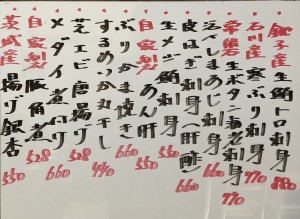 銚子産 鮪トロ刺身 880
石川産 寒ぶり刺身 770
常磐産 生ボタン海老刺身 770
活〆しまあじ刺身 660
皮はぎ刺身(肝酢) 660
生メジ鮪刺身 550
自家製 あん肝 550
ぶりかま焼き 660
するめいか丸干し 440
芝エビ唐揚 528
メダイ煮付 660
自家製 豚角煮 528
茨城産 揚げ銀杏 550